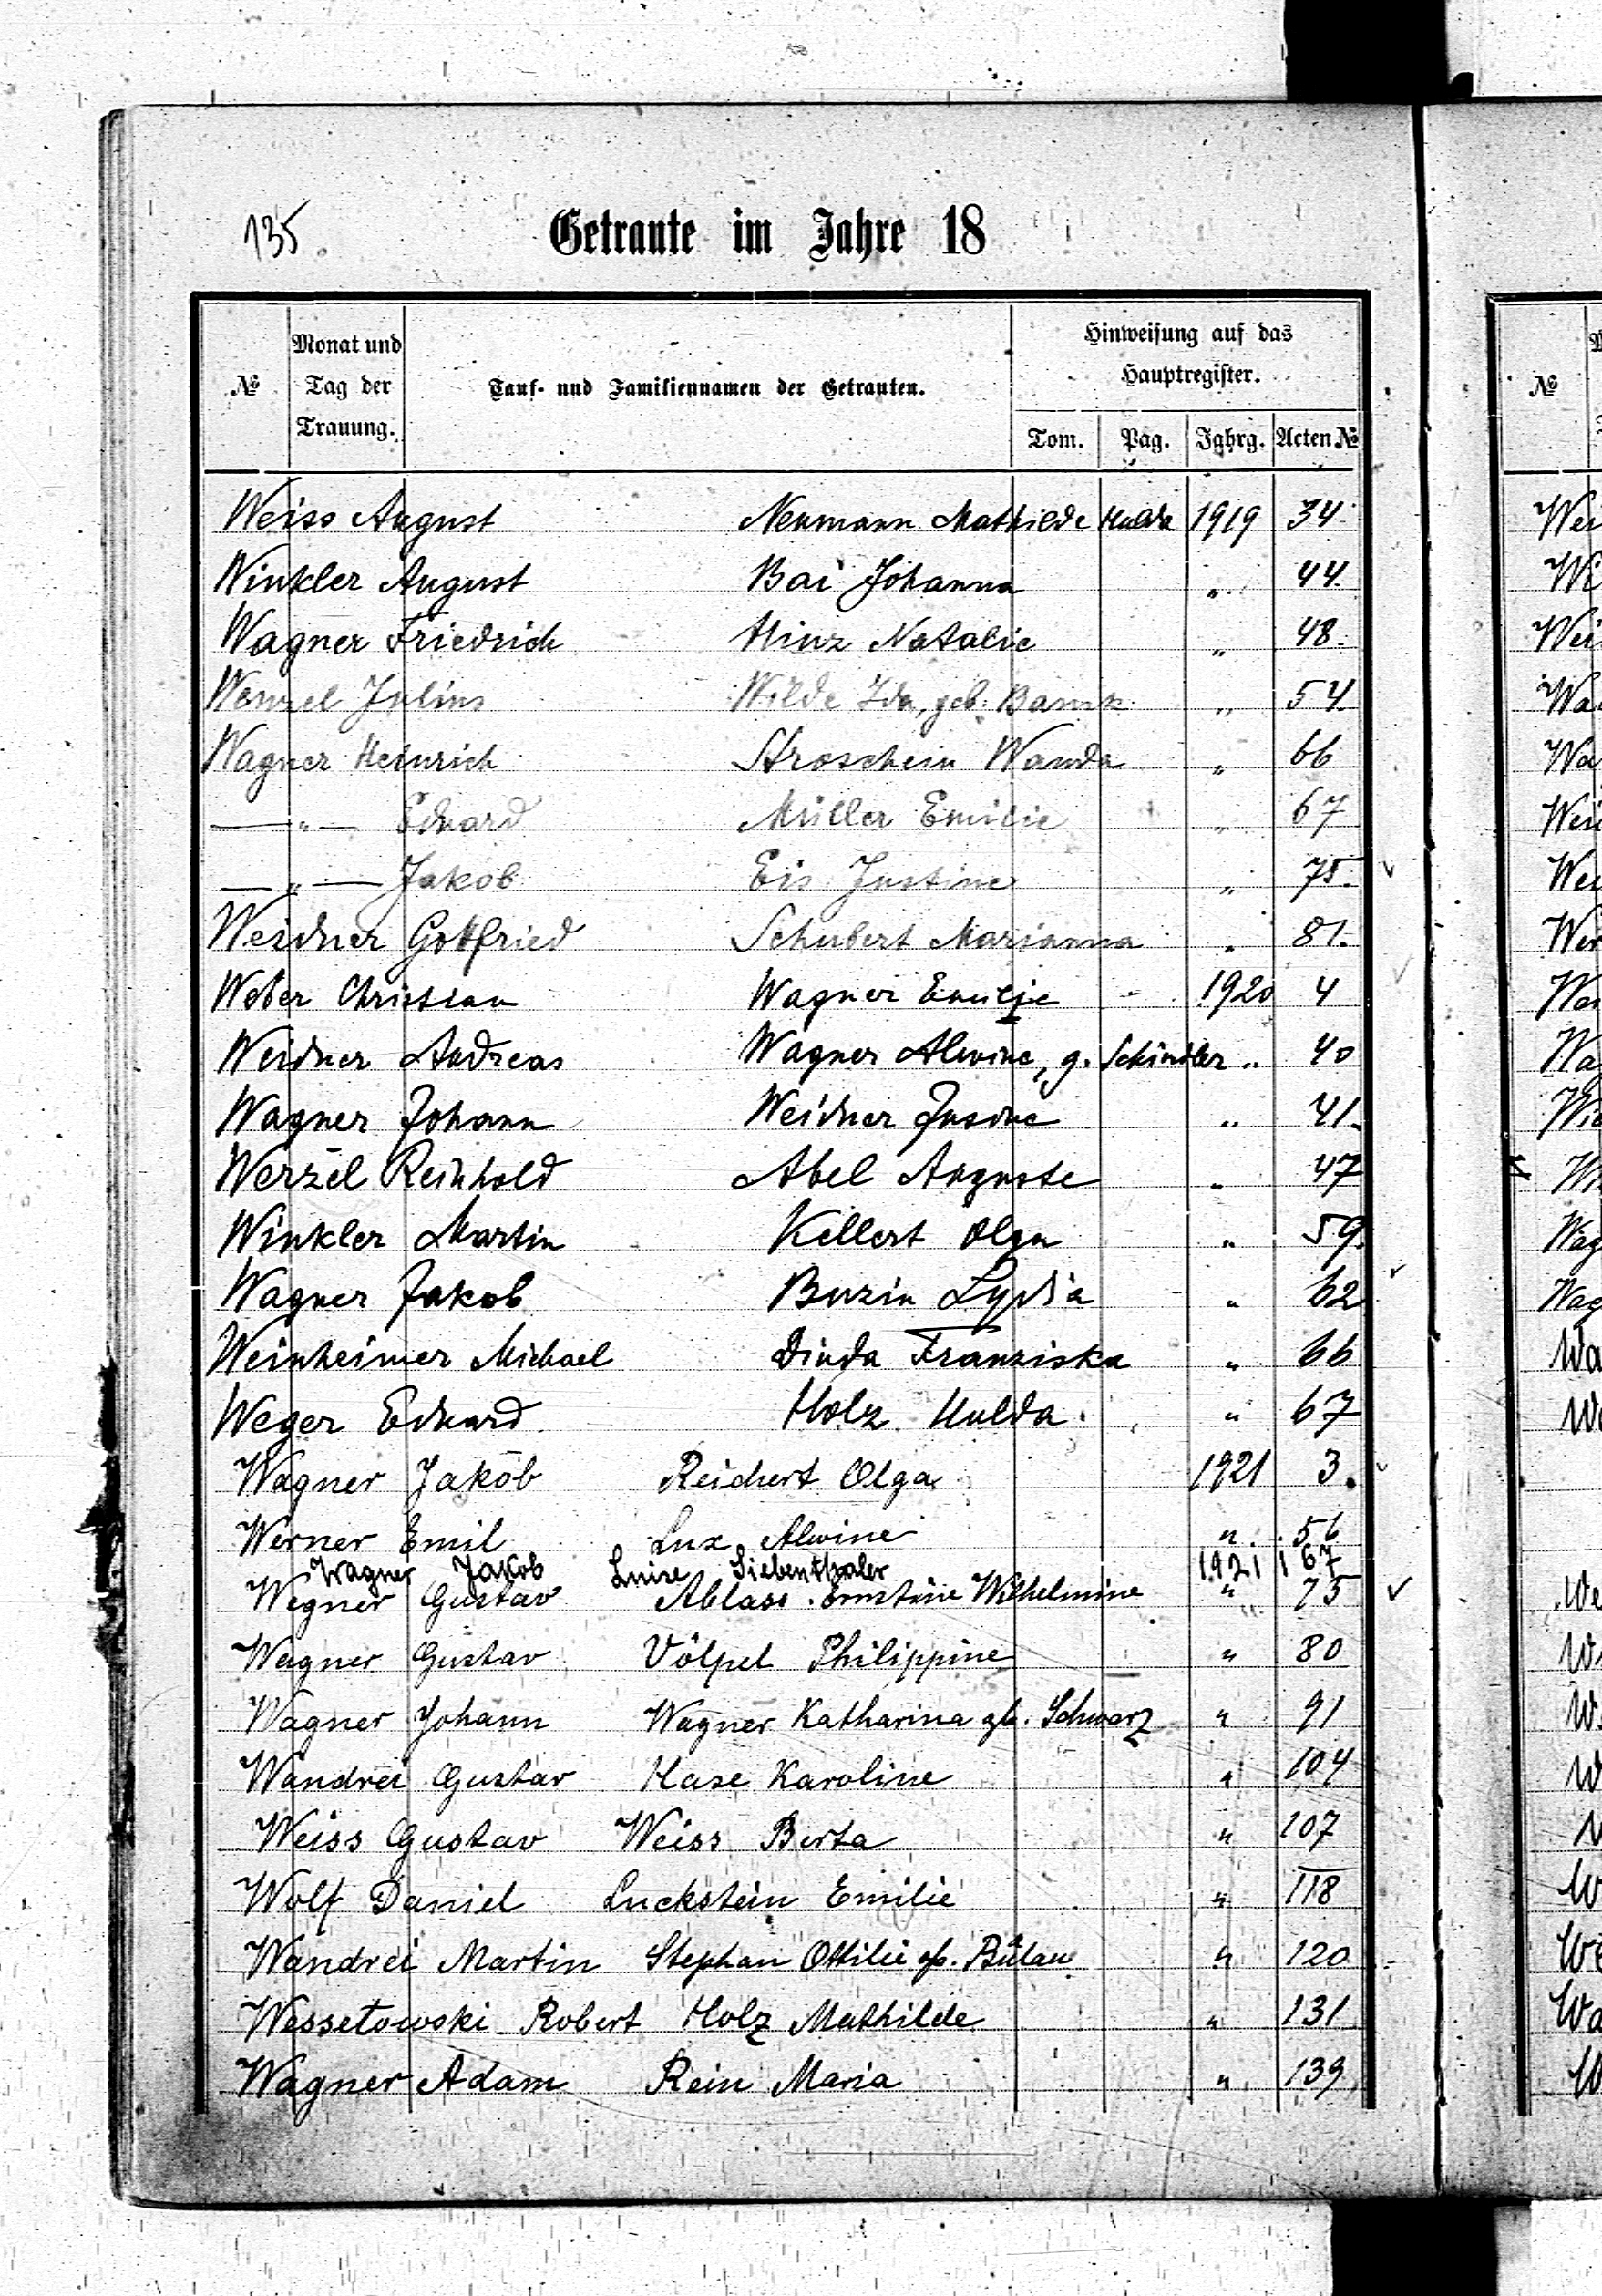 135
Getraute im Jahre 18
№ Monat und Tag der Trauung. Tauf- und Familiennamen der Getrauten. Hinweisung auf das Hauptregister.
Tom. Pag. Jahrg. Acten №
Weiss August Neumann Mathilde Hulda 1919 34.
Winkler August Bai Johanna " 44.
Wagner Friedrich Hinz Natalie " 48.
Wenzel Julius Wilde Ida, geb. " 54.
Wagner Heinrich Stroschein Wanda " 66
—"— Eduard Müller Emilie " 67
—"— Jakob Eis Justine " 75.
Weidner Gottfried Schubert Marianna " 81.
Weber Christian Wagner Emilje 1920 4
Weidner Andreas Wagner Alwine, g. Schindler " 40
Wagner Johann Weidner " 41.
Werzel Reinhold Abel Auguste " 47
Winkler Martin Kellert Olga " 59.
Wagner Jakob Buzin Lydia " 62
Weinheimer Michael Dinda Franziska " 66
Weger Eduard Holz Hulda. " 67
Wagner Jakob Reichert Olga 1921 3.
Werner Emil Lux Alwine " 56
Wagner Jakob Luise Siebenthaler 1921 67
Wegner Gustav Ablass Ernstine Wilhelmine " 75
Wagner Gustav Völpel Philippine " 80
Wagner Johann Wagner Katharina gb. Schwarz " 91
Wandrei Gustav Hase Karoline " 104
Weiss Gustav Weiss Berta " 107
Wolf Daniel Luckstein Emilie " 118
Wandrei Martin Stephan Ottilie gb. Bülau " 120
Wessetowski Robert Holz Mathilde " 131
Wagner Adam Rein Maria " 139
№